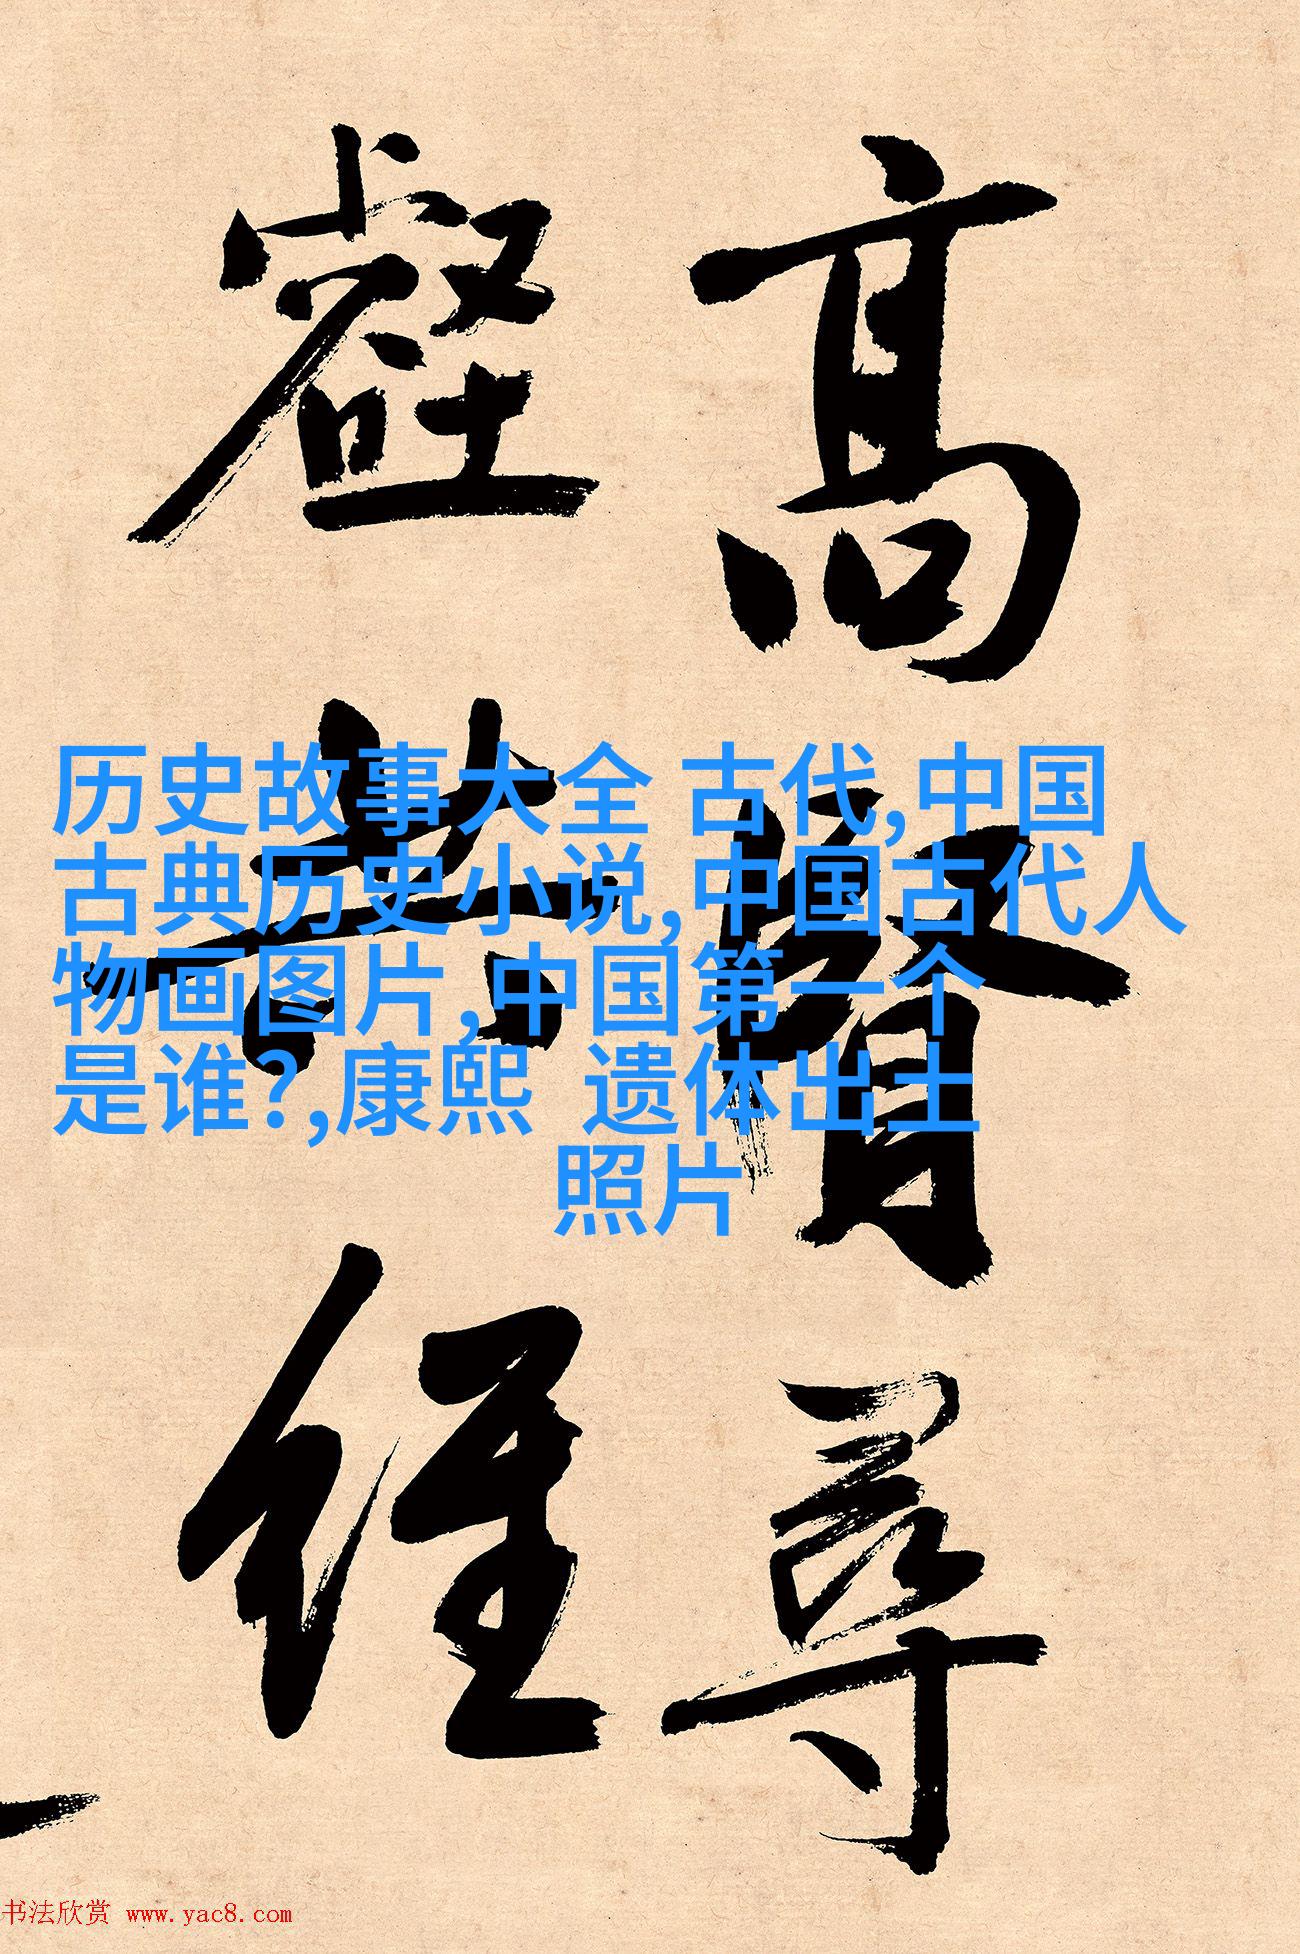 高賢尋
壑共經
历史故事大全 古代,中国
古典历史小说,中国古代人
物画图片,中国第一个
是谁?,康熙 遗体出土
照片
书法欣赏 www.yac8.com